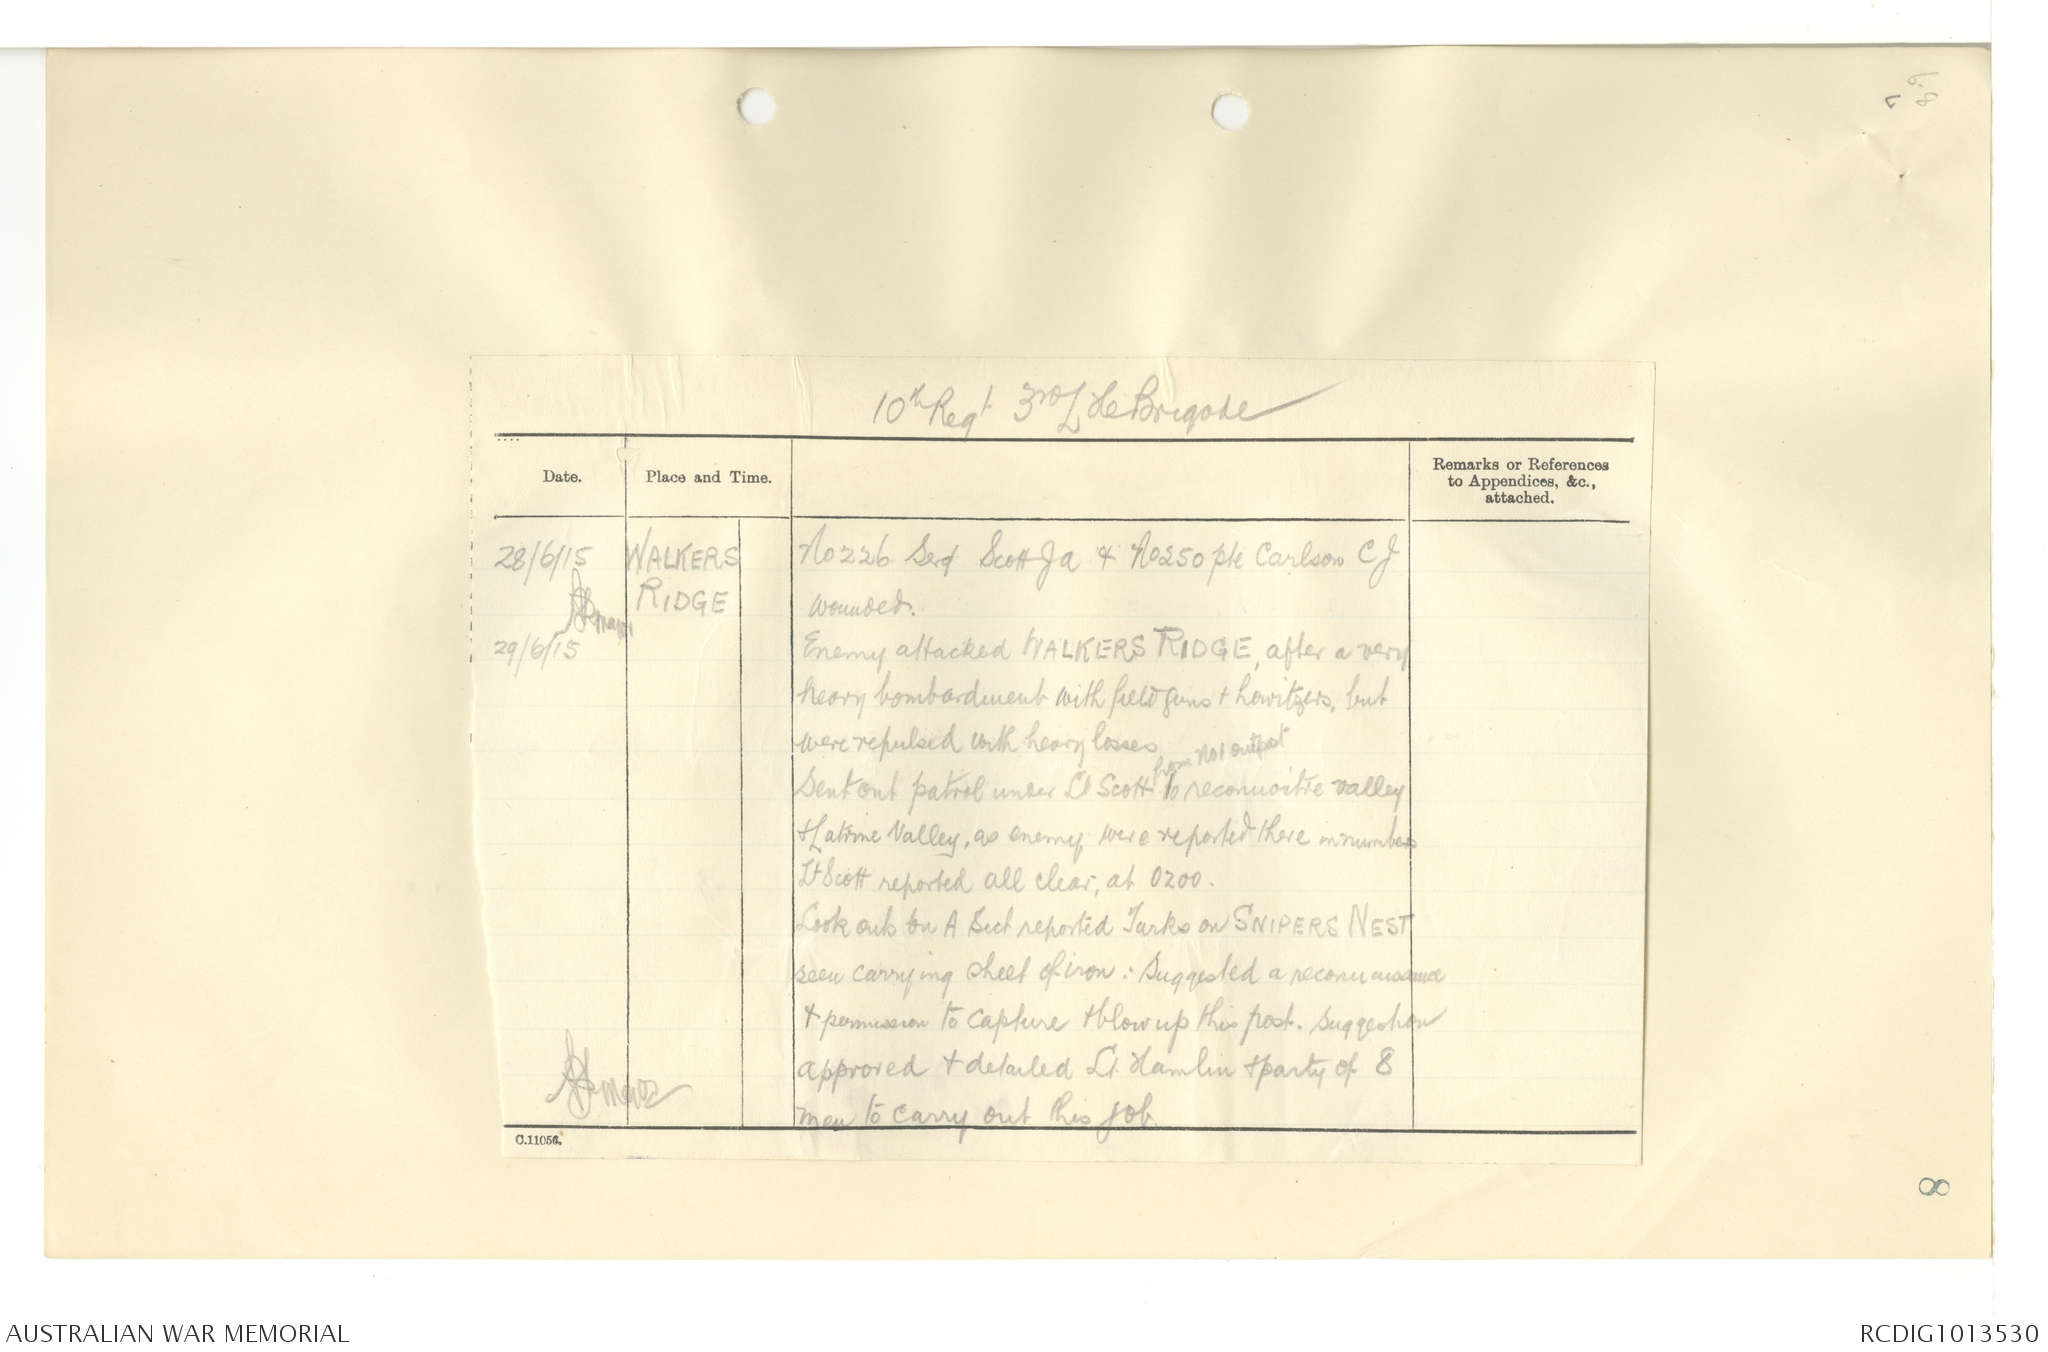 10th Regt 3rd L H Brigade
Date.
Place and Time.
Remarks or References
to Appendices, &c.,
attached.
28/6/15
WALKERS
RIDGE
No 226 Sergt Scott J a & No 250 pte Carlson C J
wounded.
29/6/15
Enemy attacked WALKERS RIDGE, after a very
heavy bombardment with field guns & howitzers, but
were repulsed with heavy losses
from No 1 outpost
Sent out patrol under Lt Scott to reconnoitre valley
& Latrine Valley, as enemy were reported there in numbers
Lt Scott reported all clear, at 0200.
Look outs on A Sect reported Turks on SNIPERS NEST
seen carrying sheet of iron: Suggested a reconnaissance
& permission to capture & blow up this post. Suggestion
approved & detailed Lt. Hamlin & party of 8
men to carry out this job.
C.11056.
8
AUSTRALIAN WAR MEMORIAL
RCDIG1013530